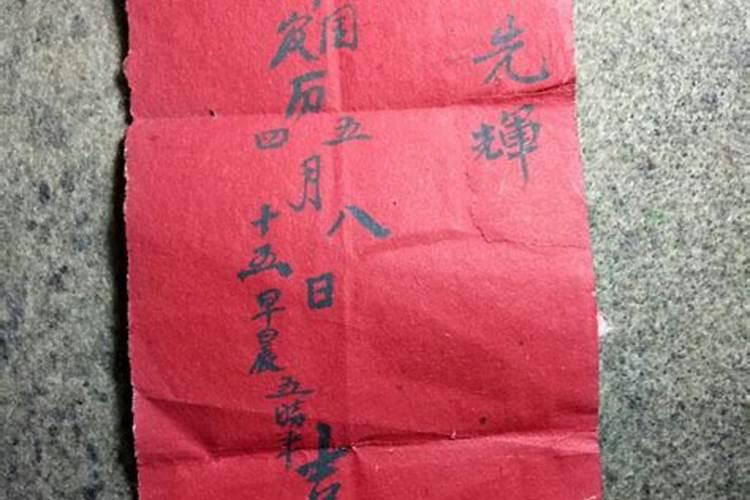 先輝
国五八
历月日吉
四十五早晨五時半